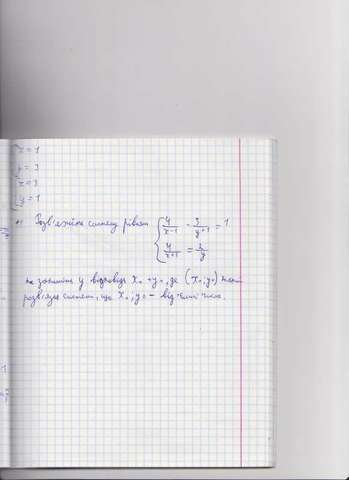 x = 1
y = 3
x = 3
y = 1
Розв'яжіть систему рівнянь { 4/(x-1) - 3/(y+1) = 1
4/(x+1) = 2/y
та запишіть у відповідь x₀ + y₀, де (x₀; y₀)
розв'язок системи, що x₀, y₀ - від'ємні числа.